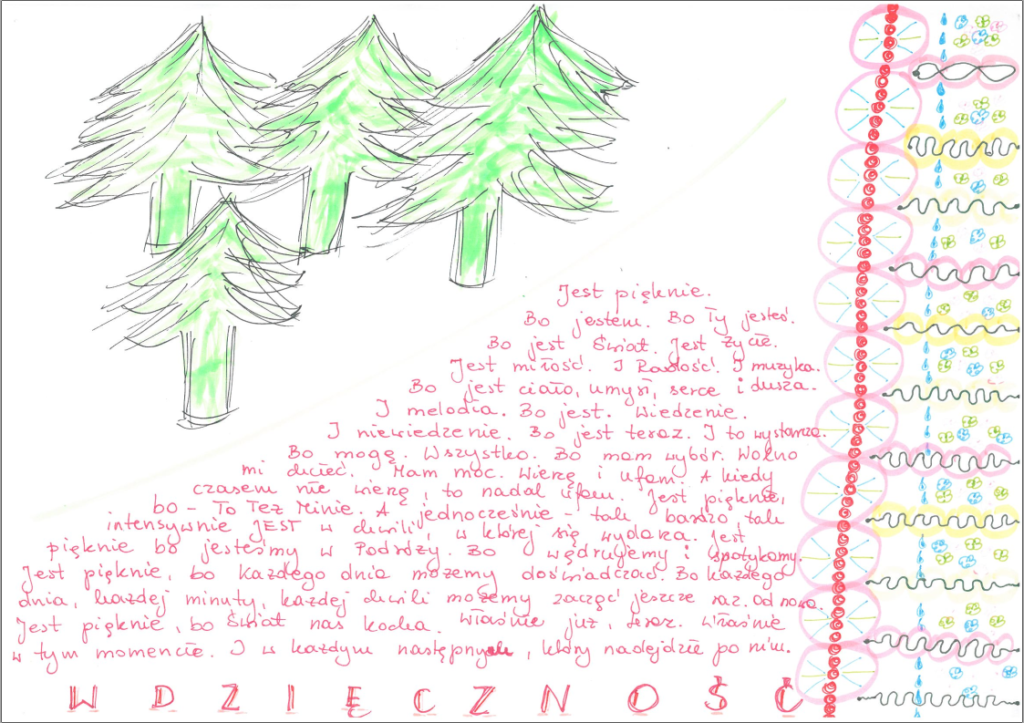 Jest pięknie.
Bo jestem. Bo Ty jesteś.
Bo jest Świat. Jest Życie.
Jest miłość. I Radość. I muzyka.
Bo jest ciało, umysł, serce i dusza.
I melodia. Bo jest. Wiedzenie.
I niewiedzenie. Bo jest teraz. I to wystarcza.
Bo mogę. Wszystko. Bo mam wybór. Wolno
mi chcieć. Mam moc. Wierzę i ufam. A kiedy
czasem nie wierzę, to nadal ufam. Jest pięknie,
bo - To Też Minie. A jednocześnie - tak bardzo tak
intensywnie JEST w chwili, w której się wydarza. Jest
pięknie bo jesteśmy w Podróży. Bo wędrujemy i spotykamy.
Jest pięknie, bo każdego dnia możemy doświadczać. Bo każdego
dnia, każdej minuty, każdej chwili możemy zacząć jeszcze raz. Od nowa.
Jest pięknie, bo Świat nas kocha. Właśnie już, teraz. Właśnie
w tym momencie. I w każdym następnych, który nadejdzie po nim.
WDZIĘCZNOŚĆ